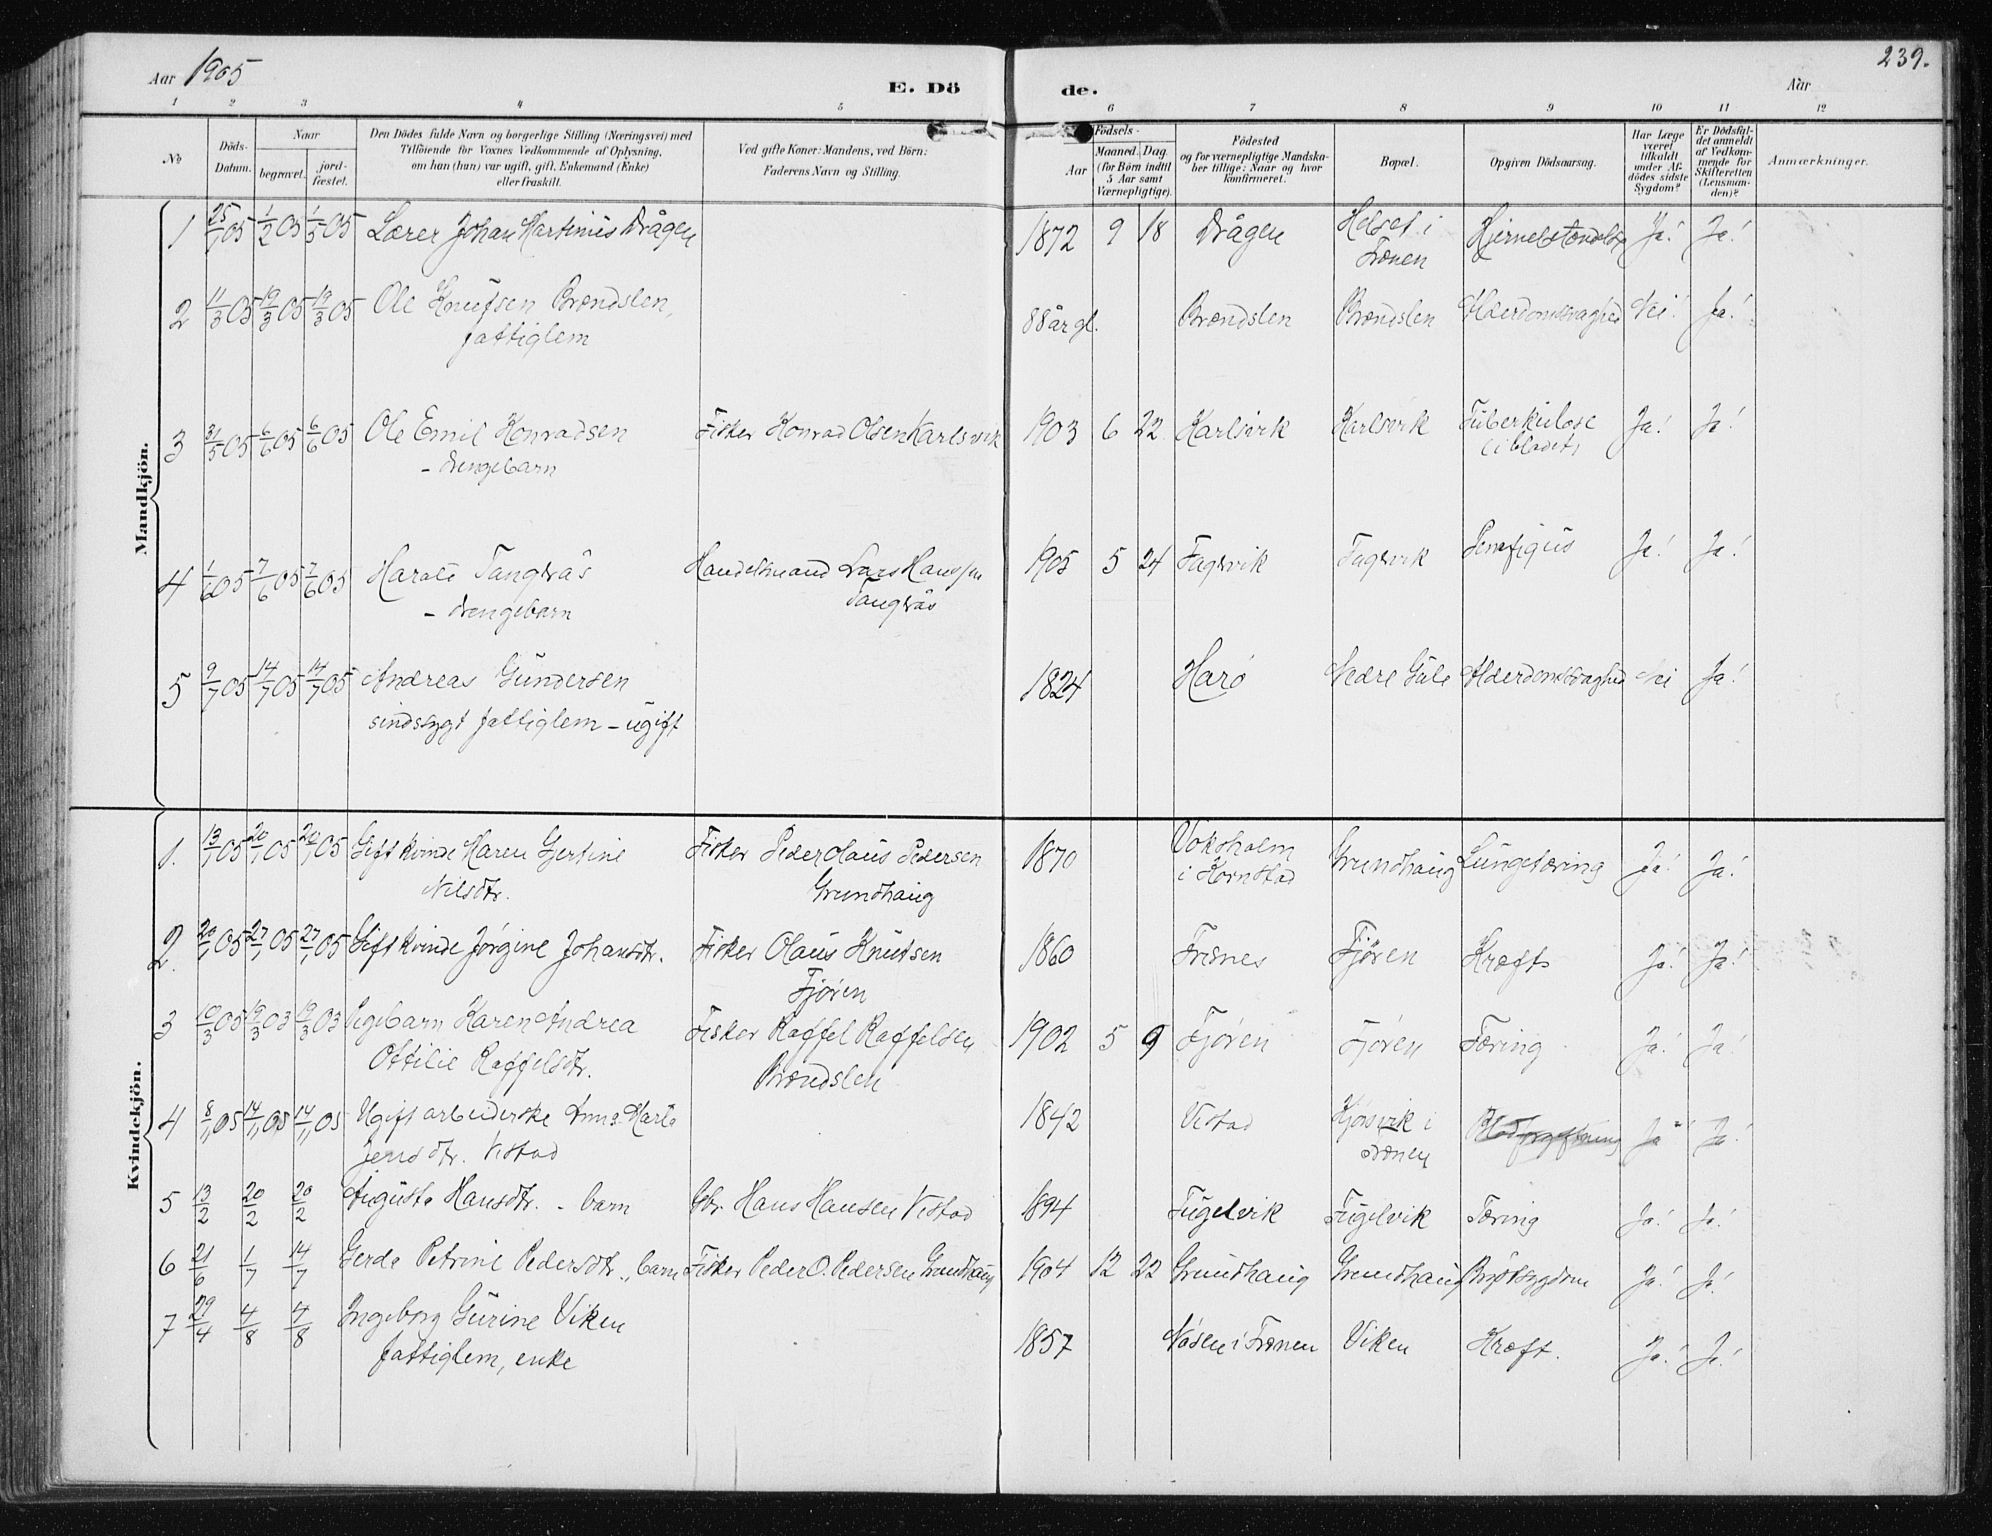 Aar 1905
E. Döde.
Aar
239.
1 2 3 4 5 6 7 8 9 10 11 12
No
Döds-Datum.
Naar
begravet.
jord-fæstet.
Den Dödes fulde Navn og borgerlige Stilling (Næringsvei) med
Tilföiende for Voxnes Vedkommende af Oplysning,
om han (hun) var ugift, gift, Enkemand (Enke)
eller fraskilt.
Ved gifte Koner: Mandens, ved Börn:
Faderens Navn og Stilling.
Födsels-
Aar
Maaned. Dag.
(for Börn indtil
5 Aar samt
Værnepligtige).
Födested
og for værnepligtige Mandska-
ber tillige: Naar og hvor
konfirmeret.
Bopæl.
Opgiven Dödsaarsag.
Har Læge
været
tilkaldt
under Af-
dödes sidste
Sygdom?
Er Dödsfal-
det anmeldt
af Vedkom-
mende for
Skifteretten
(Lensman-
den)?
Anmærkninger.
Mandkjön.
1 25/1 05 1/2 05 1/5 05 Lærer Johan Martinus Drågen 1872 9 18 Drågen Helset i Hjernebetændelse Ja! Ja!
Frænen
2 11/3 05 19/3 05 19/3 05 Ole Knutsen Brændslen, 88 år gl. Brændslen Brændslen Alderdomssvaghed Nei! Ja!
fattiglem
3 31/5 05 6/6 05 6/6 05 Ole Emil Konradsen Fisker Konrad Olsen Karlsvik 1903 6 22 Karlsvik Karlsvik Tuberkulose Ja! Ja!
- drengebarn
4 1/6 05 7/6 05 7/6 05 Harald Tangerås Handelsmand Lars Hanssen 1905 5 24 Fagervik Fagervik Pemfigus Ja! Ja!
- drengebarn Tangerås
5 9/7 05 14/7 05 14/7 05 Andreas Gundersen 1824 Harø Nedre Gule Alderdomssvaghed Nei Ja!
sindssygt fattiglem - ugift
Kvindekjön.
1. 13/1 05 20/1 05 20/1 05 Gift kvinde Maren Gjertine Fisker Peder Olaus Pedersen 1870 Voksholm Grundhaug Lungetæring Ja! Ja!
Nilsdtr. Grundhaug i Kornstad
2. 20/1 05 27/1 05 27/1 05 Gift kvinde Jørgine Johansdtr. Fisker Olaus Knutsen 1860 Frisnes Fjøren Kræft Ja! Ja!
Fjøren
3 10/3 05 19/3 03 19/3 03 Pigebarn Karen Andrea Fisker Raffel Raffelsen 1902 5 9 Fjøren Fjøren Tæring Ja! Ja!
Ottilie Raffelsdtr. Brændslen
4 8/1 05 14/1 05 14/1 05 Ugift arbeiderske Anna Marta 1842 Vistad Kjørsvik i Blodforgiftning Ja Ja!
Jensdtr. Vistad Frænen
5 13/2 20/2 20/2 Augusta Hansdtr. - barn Gbr. Hans Hansen Vistad 1894 Fugelvik Fugelvik Tæring Ja! Ja!
6 21/6 1/7 14/7 Gerda Petrine Pedersdtr., barn Fisker Peder O. Pedersen Grundhaug 1904 12 22 Grundhaug Grundhaug Brystsygdom Ja! Ja!
7 29/4 4/8 4/8 Ingeborg Gurine Viken 1857 Nåsen i Frænen Viken Kræft. Ja! Ja!
fattiglem, enke